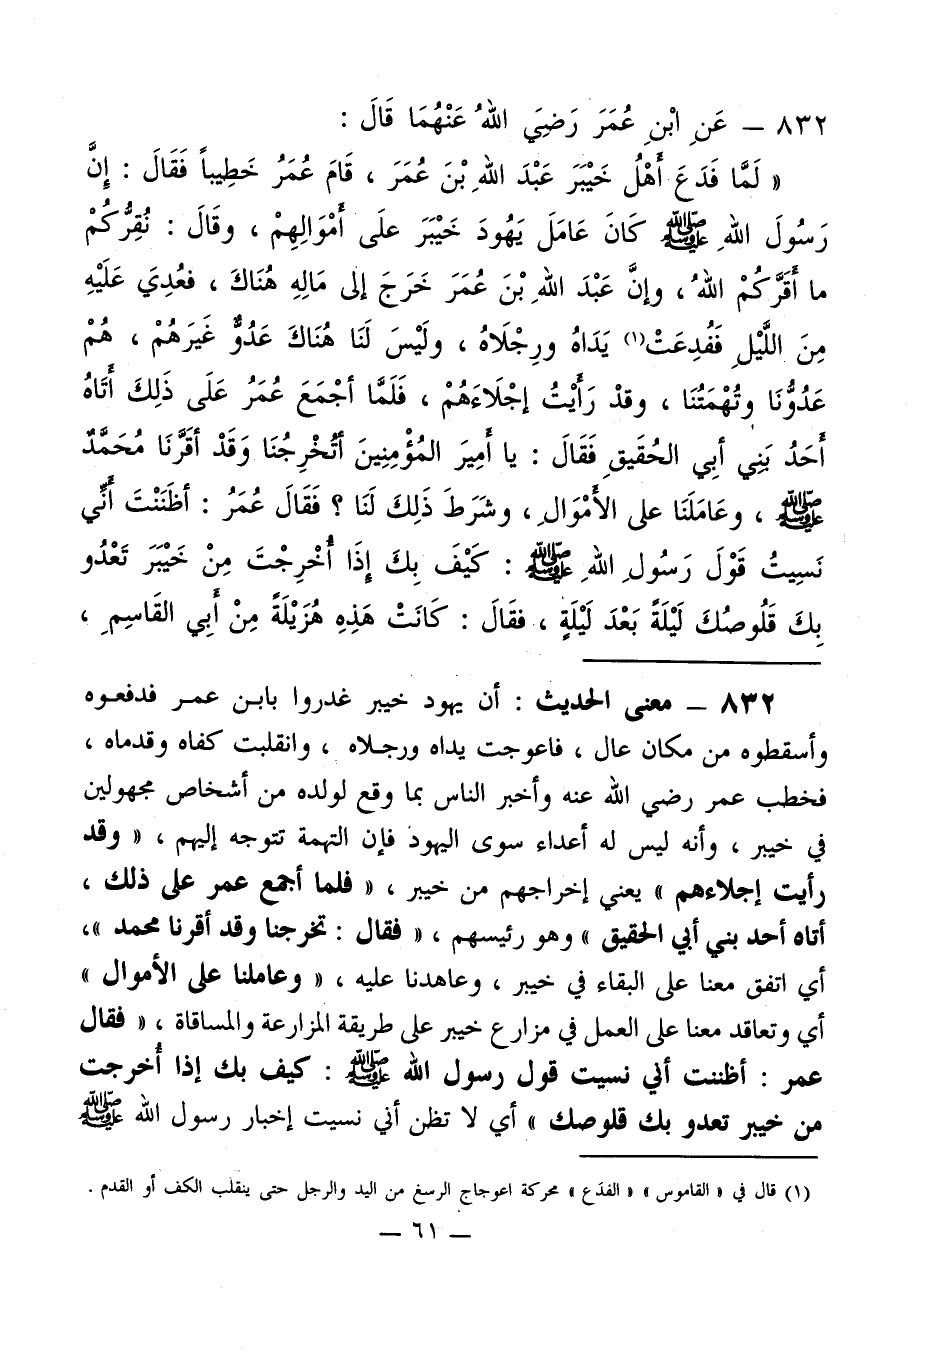 ٨٣٢ – عَنِ ابْنِ عُمَرَ رَضِيَ اللهُ عَنْهُمَا قَالَ :
« لَمَّا فَدَعَ أَهْلُ خَيْبَرَ عَبْدَ اللهِ بْنَ عُمَرَ ، قَامَ عُمَرُ خَطِيباً فَقَالَ : إِنَّ
رَسُولَ اللهِ ﷺ كَانَ عَامَلَ يَهُودَ خَيْبَرَ علَى أَمْوَالِهِمْ ، وقَالَ : نُقِرُّكُمْ
ما أَقَرَّكُمْ اللهُ ، وإِنَّ عَبْدَ اللهِ بْنَ عُمَرَ خَرَجَ إلى مَالِهِ هُنَاكَ ، فعُدِيَ عَلَيْهِ
مِنَ اللَّيْلِ فَفُدِعَتْ(١) يَدَاهُ ورِجْلَاهُ ، ولَيْسَ لَنَا هُنَاكَ عَدُوٌّ غَيَرَهُمْ ، هُمْ
عَدُوُّنَا وتُهْمَتُنَا ، وقدْ رَأَيْتُ إجْلَاءَهُمْ ، فَلَمَّا أجْمَعَ عُمَرُ عَلَى ذَلِكَ أَتَاهُ
أَحَدُ بَنِي أبي الحُقَيقِ فَقَالَ : يا أَمِيرَ المُؤْمِنِينَ أتُخْرِجُنَا وَقَدْ أقَرَّنَا مُحَمَّدٌ
ﷺ ، وعَامَلَنَا على الأَمْوَالِ ، وشَرَطَ ذَلِكَ لَنَا ؟ فَقَالَ عُمَرُ : أظَنَنْتَ أَنِّي
نَسِيتُ قَوْلَ رَسُولِ اللهِ ﷺ : كَيْفَ بِكَ إِذَا أُخْرِجْتَ مِنْ خَيْبَرَ تَعْدُو
بِكَ قَلُوصُكَ لَيْلَةً بَعْدَ لَيْلَةٍ ، فقَالَ : كَانَتْ هَذِهِ هُزَيْلَةً مِنْ أَبِي القَاسِمِ ،
٨٣٢ – معنى الحديث : أن يهود خيبر غدروا بابن عمر فدفعوه
وأسقطوه من مكان عال ، فاعوجت يداه ورجلاه ، وانقلبت كفاه وقدماه ،
فخطب عمر رضي الله عنه وأخبر الناس بما وقع لولده من أشخاص مجهولين
في خيبر ، وأنه ليس له أعداء سوى اليهود فإن التهمة تتوجه إليهم ، « وقد
رأيت إجلاءهم » يعني إخراجهم من خيبر ، « فلما أجمع عمر على ذلك ،
أتاه أحد بني أبي الحقيق » وهو رئيسهم ، « فقال : تخرجنا وقد أقرنا محمد »،
أي اتفق معنا على البقاء في خيبر ، وعاهدنا عليه ، « وعاملنا على الأموال »
أي وتعاقد معنا على العمل في مزارع خيبر على طريقة المزارعة والمساقاة ، « فقال
عمر : أظننت أني نسيت قول رسول الله ﷺ : كيف بك إذا أُخرجت
من خيبر تعدو بك قلوصك » أي لا تظن أني نسيت إخبار رسول الله ﷺ
(١) قال في « القاموس » « الفدَع » محركة اعوجاج الرسغ من اليد والرجل حتى ينقلب الكف أو القدم .
– ٦١ –